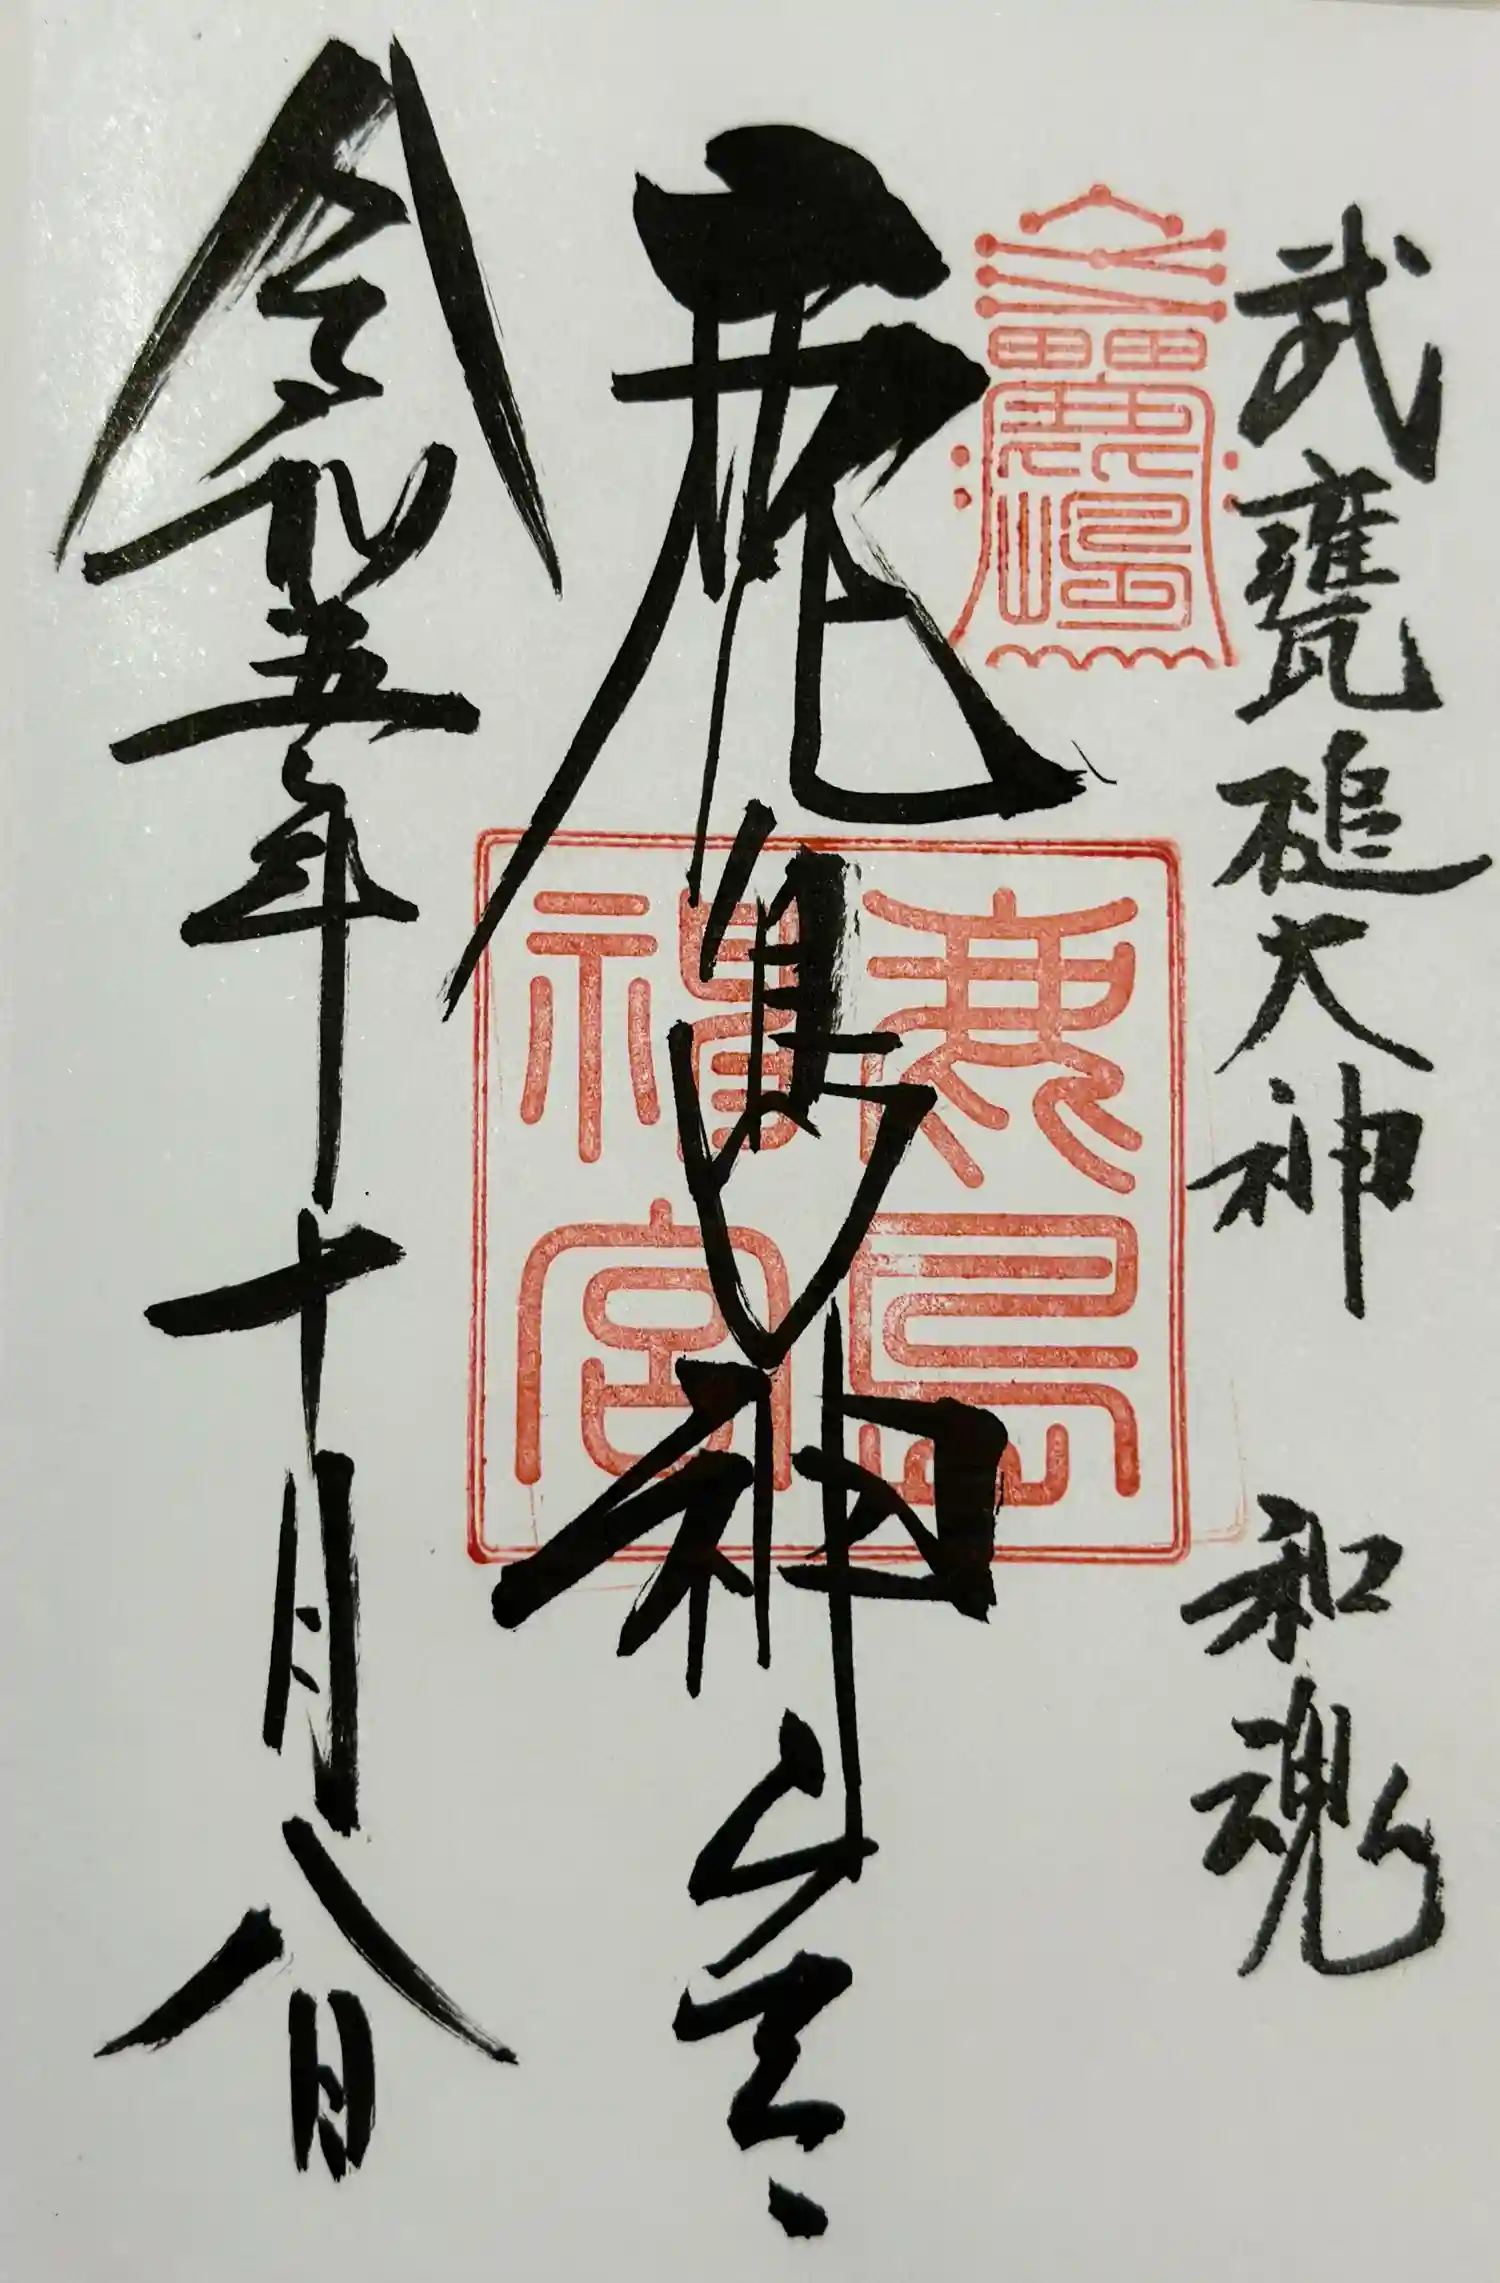 武甕槌大神　和魂
鹿島神宮
鹿島
神宮
令和五年十月八日